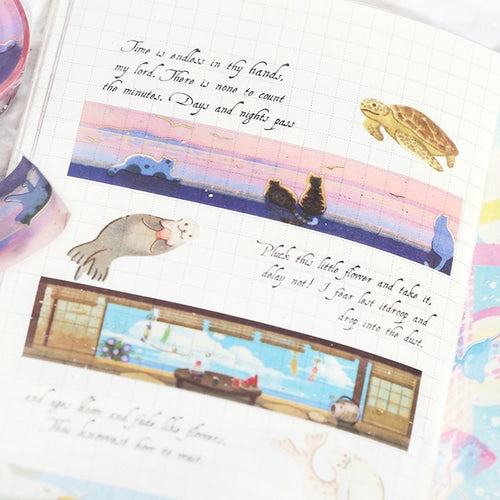 Time is endless in thy hands,
my lord. There is none to count
the minutes. Days and nights pass
Pluck this little flower and take it,
delay not! I fear lest itdroop and
drop into the dust.
and ages bloom and fade like flowers.
Thou knowest how to wait.